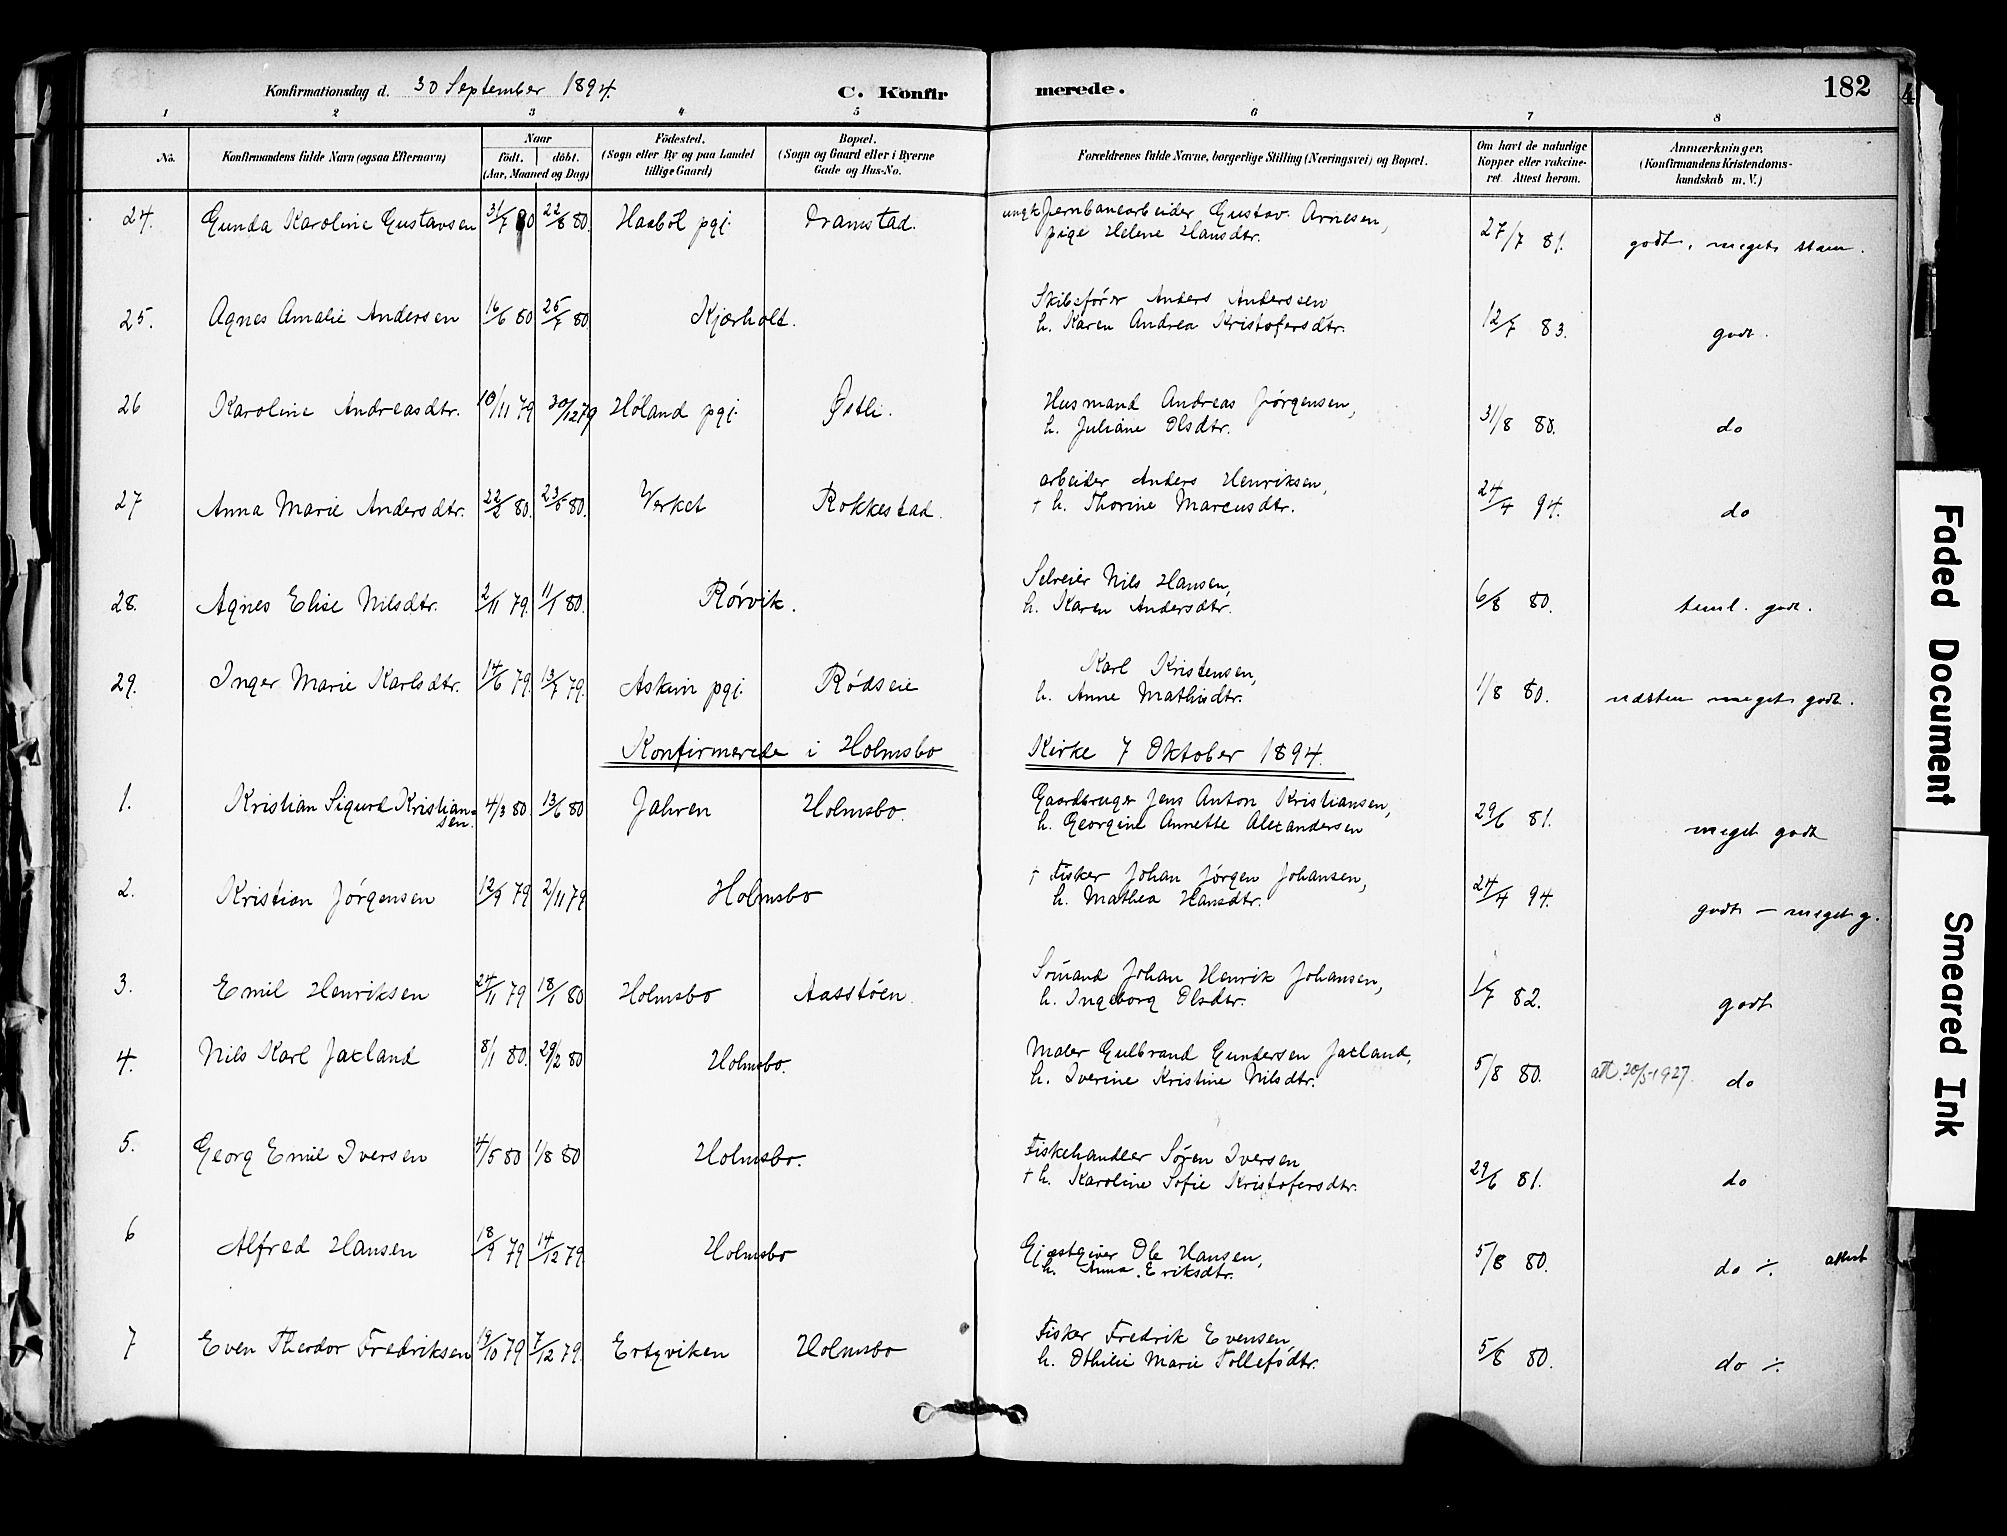 Konfirmationsdag d. 30 September 1894.
C. Konfirmerede.
182
1 2 3 4 5 6 7 8
No.
Konfirmandens fulde Navn (ogsaa Efternavn)
Naar
født. | døbt.
(Aar, Maaned og Dag)
Fødested.
(Sogn eller By og paa Landet
tillige Gaard)
Bopæl.
(Sogn og Gaard eller i Byerne
Gade og Hus-No.
Forældrenes fulde Navne, borgerlige Stilling (Næringsvei) og Bopæl.
Om havt de naturlige
Kopper eller vakcine-
ret. Attest herom.
Anmærkninger,
(Konfirmandens Kristendoms-
kundskab m. V.)
24. Gunda Karoline Gustavsen 31/7 80 22/8 80. Haabøl pgj. Tramstad. ungk Jernbanearbeider Gustav Arnesen,
pige Helene Hansdtr. 27/7 81. godt, meget
25. Agnes Amalie Andersen 16/6 80 25/7 80 Kjærholt. Skibsfører Anders Anderssen
h. Karen Andrea Kristofersdtr. 12/7 83. godt.
26 Karoline Andreasdtr. 10/11 79 30/12 79 Høland pgj. Østli. Husmand Andreas Jørgensen,
h. Juliane Olsdtr. 31/8 80. do
27 Anna Marie Andersdtr. 22/2 80. 23/5 80. Verket Rokkestad. arbeider Anders Henriksen,
† h. Thorine Marcusdtr. 24/4 94. do
28. Agnes Elise Nilsdtr. 2/11 79. 11/1 80. Rørvik. Selveier Nils Hansen,
h. Karen Andersdtr. 6/8 80. teml. godt.
29. Inger Marie Karlsdtr. 14/6 79. 13/7 79. Askim pgj. Rødseie Karl Kristensen,
h. Anne Mathisdtr. 1/8 80. næsten meget godt.
Konfirmerede i Holmsbo Kirke 7 Oktober 1894.
1. Kristian Sigurd Kristian=
sen. 4/3 80. 13/6 80 Jahren Holmsbo. Gaardbruger Jens Anton Kristiansen,
h. Georgine Annette Alexandersen 29/6 81. meget godt
2. Kristian Jørgensen 12/9 79 2/11 79 Holmsbo † Fisker Johan Jørgen Johansen,
h. Mathea Hansdtr. 24/4 94. godt – meget g.
3. Emil Henriksen 24/11 79 18/1 80 Holmsbo Aasstøen. Sømand Johan Henrik Johansen,
h. Ingeborg Olsdtr. 1/7 82. godt
4. Nils Karl Jaxland 8/1 80. 29/2 80 Holmsbo. Maler Gulbrand Gundersen Jaxland,
h. Iverine Kristine Nilsdtr. 5/8 80. att. 20/5-1927. do
5. Georg Emil Iversen 4/5 80 1/8 80 Holmsbo. Fiskehandler Søren Iversen
† h. Karoline Sofie Kristofersdtr. 29/6 81. do
6 Alfred Hansen 18/9 79 14/12 79. Holmsbo Gjæstgiver Ole Hansen,
h. Anna Eriksdtr. 5/8 80. do ./. attest
7 Even Theodor Fredriksen 19/10 79 7/12 79. Ertqviken Holmsbo Fisker Fredrik Evensen
h. Othilie Marie Tollefsdtr. 5/8 80. do ./.
Faded Document
Smeared Ink